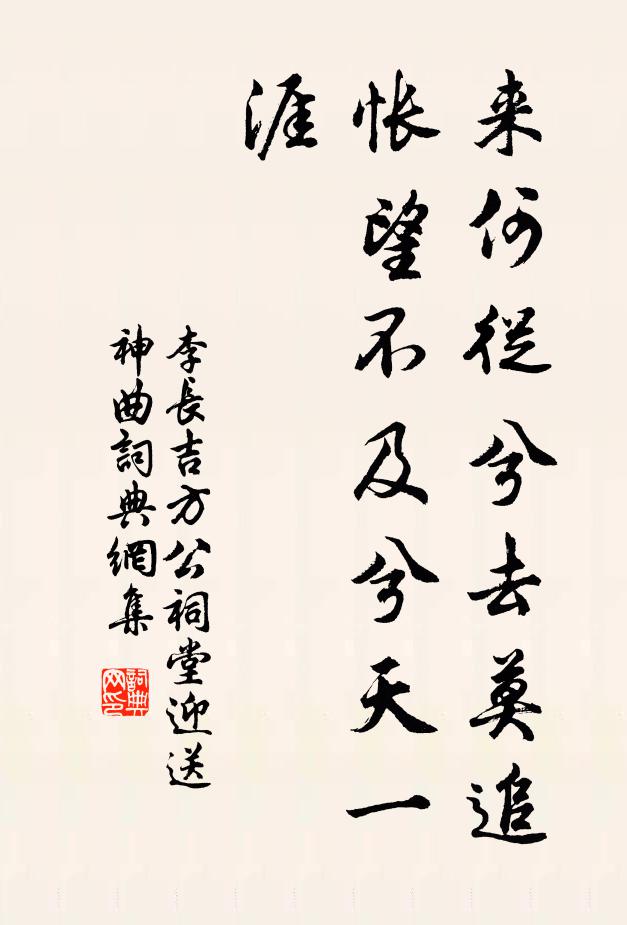 来何從兮去莫追
悵望不及兮天一
涯
李長吉方公祠堂迎送
神曲詞典網集
詞典
网印